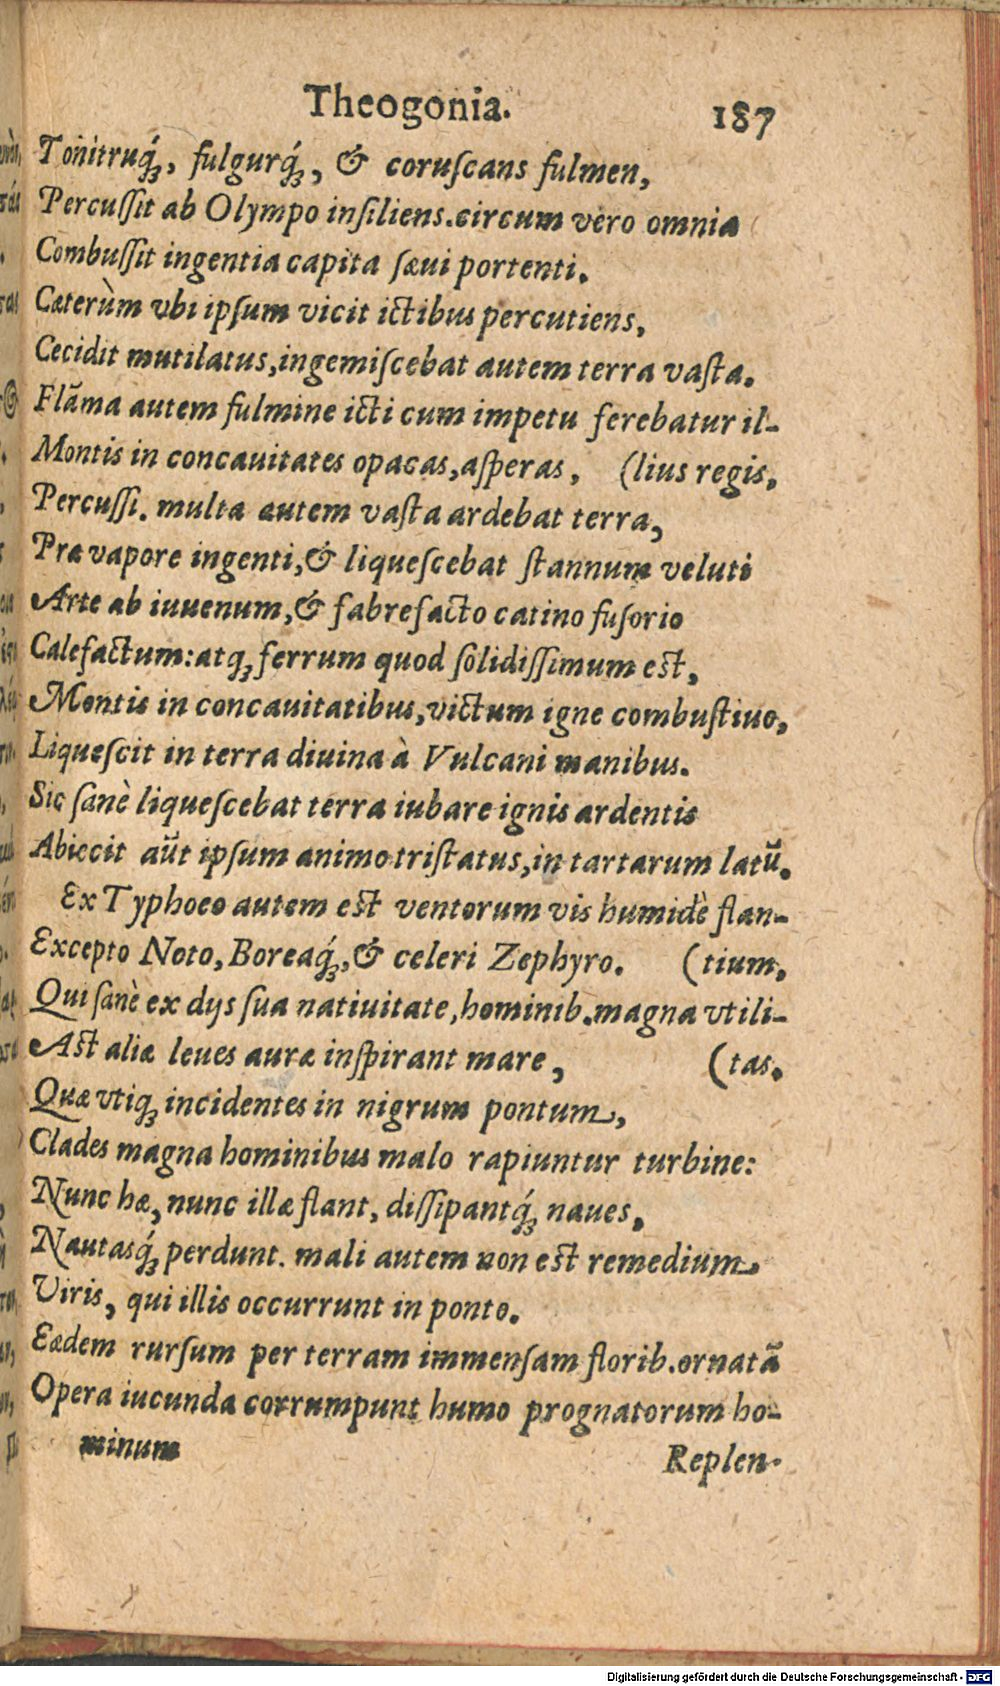 Theogonia. 187
Tonitruq́;, fulgurq́;, & coruſcans fulmen,
Percuſſit ab Olympo inſiliens.circum vero omnia
Combuſſit ingentia capita ſæui portenti.
Cæterùm vbi ipſum vicit ictibus percutiens,
Cecidit mutilatus,ingemiſcebat autem terra vaſta.
Flãma autem fulmine icti cum impetu ferebatur il-
Montis in concauitates opacas,aſperas, (lius regis,
Percuſſi. multa autem vaſta ardebat terra,
Præ vapore ingenti,& liqueſcebat ſtannum veluti
Arte ab iuuenum,& fabrefacto catino fuſorio
Calefactum:atq; ferrum quod ſolidiſſimum eſt,
Montis in concauitatibus,victum igne combuſtiuo,
Liqueſcit in terra diuina à Vulcani manibus.
Sic ſanè liqueſcebat terra iubare ignis ardentis
Abiecit aũt ipſum animo triſtatus,in tartarum latũ.
Ex Typhoeo autem eſt ventorum vis humidè flan-
Excepto Noto,Boreaq́;,& celeri Zephyro. (tium,
Qui ſanè ex dijs ſua natiuitate,hominib.magna vtili-
Aſt aliæ leues auræ inſpirant mare, (tas.
Quæ vtiq; incidentes in nigrum pontum,
Clades magna hominibus malo rapiuntur turbine:
Nunc hæ, nunc illæ flant, diſſipantq́; naues,
Nautasq́; perdunt. mali autem non eſt remedium
Viris, qui illis occurrunt in ponto.
Eædem rurſum per terram immenſam florib.ornatã
Opera iucunda corrumpunt humo prognatorum ho-
minum
Replen-
Digitalisierung gefördert durch die Deutsche Forschungsgemeinschaft - DFG